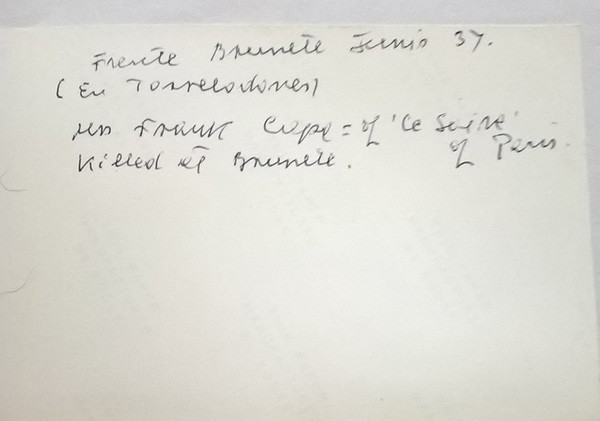 Frente Brunete Junio 37.
(En Torrelodones)
Mrs Frank Capa = of 'Ce Soire'
Killed at Brunete. of Paris.